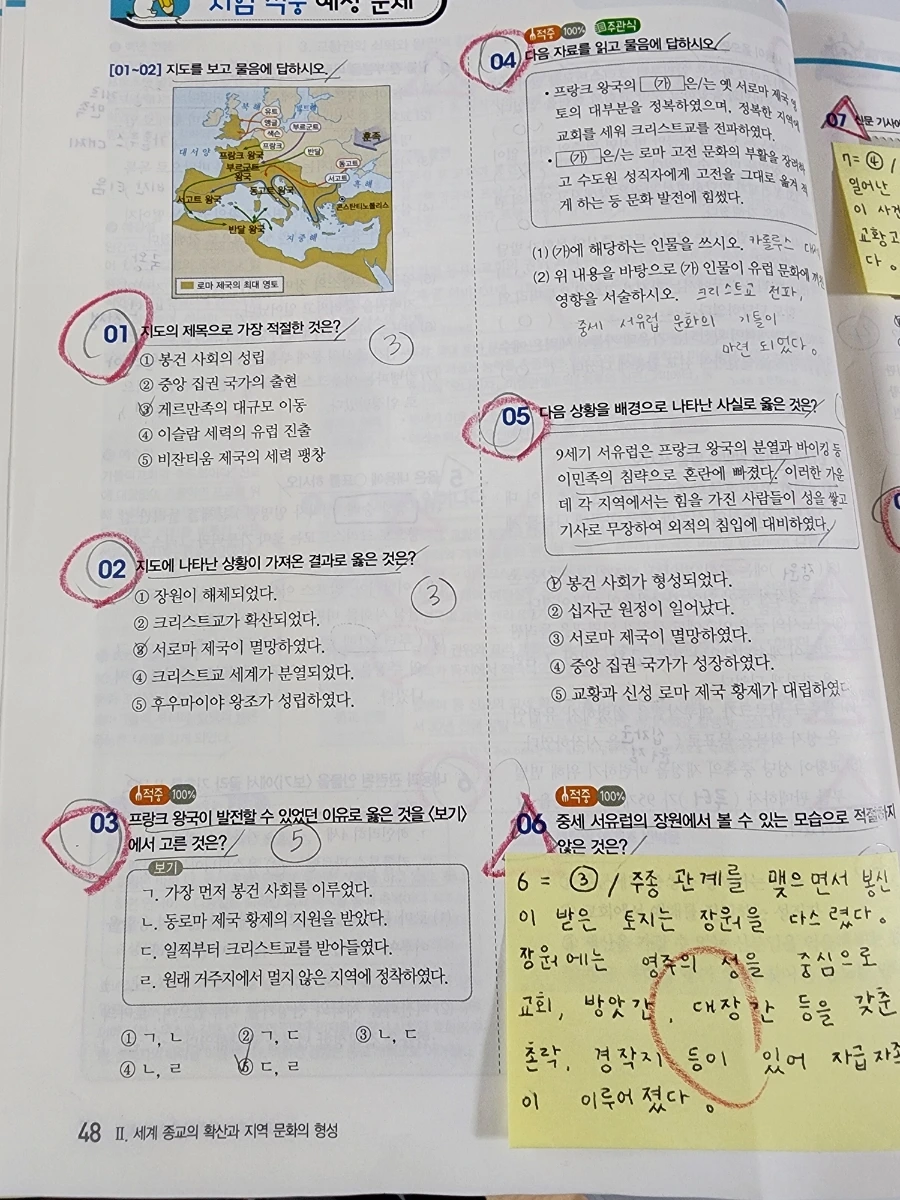 시험 적중 예상 문제
[01~02] 지도를 보고 물음에 답하시오.
북해
유트
앵글
색슨
부르군트
훈족
대서양
프랑크
반달
프랑크 왕국
부르군트
왕국
동고트
서고트
흑해
동고트 왕국
서고트 왕국
콘스탄티노폴리스
반달 왕국
지중해
로마 제국의 최대 영토
01 지도의 제목으로 가장 적절한 것은?
③
① 봉건 사회의 성립
② 중앙 집권 국가의 출현
③ 게르만족의 대규모 이동
④ 이슬람 세력의 유럽 진출
⑤ 비잔티움 제국의 세력 팽창
02 지도에 나타난 상황이 가져온 결과로 옳은 것은?
③
① 장원이 해체되었다.
② 크리스트교가 확산되었다.
③ 서로마 제국이 멸망하였다.
④ 크리스트교 세계가 분열되었다.
⑤ 후우마이야 왕조가 성립하였다.
적중 100%
03 프랑크 왕국이 발전할 수 있었던 이유로 옳은 것을 <보기>
에서 고른 것은?
⑤
보기
ㄱ. 가장 먼저 봉건 사회를 이루었다.
ㄴ. 동로마 제국 황제의 지원을 받았다.
ㄷ. 일찍부터 크리스트교를 받아들였다.
ㄹ. 원래 거주지에서 멀지 않은 지역에 정착하였다.
① ㄱ, ㄴ ② ㄱ, ㄷ ③ ㄴ, ㄷ
④ ㄴ, ㄹ ⑤ ㄷ, ㄹ
48 Ⅱ. 세계 종교의 확산과 지역 문화의 형성
적중 100% 주관식
04 다음 자료를 읽고 물음에 답하시오.
• 프랑크 왕국의 (가) 은/는 옛 서로마 제국 영
토의 대부분을 정복하였으며, 정복한 지역에
교회를 세워 크리스트교를 전파하였다.
• (가) 은/는 로마 고전 문화의 부활을 장려하
고 수도원 성직자에게 고전을 그대로 옮겨 적
게 하는 등 문화 발전에 힘썼다.
(1) (가)에 해당하는 인물을 쓰시오. 카롤루스 대
(2) 위 내용을 바탕으로 (가) 인물이 유럽 문화에 끼친
영향을 서술하시오. 크리스트교 전파,
중세 서유럽 문화의 기틀이
마련 되었다.
05 다음 상황을 배경으로 나타난 사실로 옳은 것은?
9세기 서유럽은 프랑크 왕국의 분열과 바이킹 등
이민족의 침략으로 혼란에 빠졌다. 이러한 가운
데 각 지역에서는 힘을 가진 사람들이 성을 쌓고
기사로 무장하여 외적의 침입에 대비하였다.
① 봉건 사회가 형성되었다.
② 십자군 원정이 일어났다.
③ 서로마 제국이 멸망하였다.
④ 중앙 집권 국가가 성장하였다.
⑤ 교황과 신성 로마 제국 황제가 대립하였다
적중 100%
06 중세 서유럽의 장원에서 볼 수 있는 모습으로 적절하지
않은 것은?
6 = ③ / 주종 관계를 맺으면서 봉신
이 받은 토지는 장원을 다스렸다.
장원에는 영주의 성을 중심으로
교회, 방앗간, 대장간 등을 갖춘
촌락, 경작지 등이 있어 자급자족
이 이루어졌다.
07 신문 기사
7= ④ /
일어난
이 사건
교황고
다.